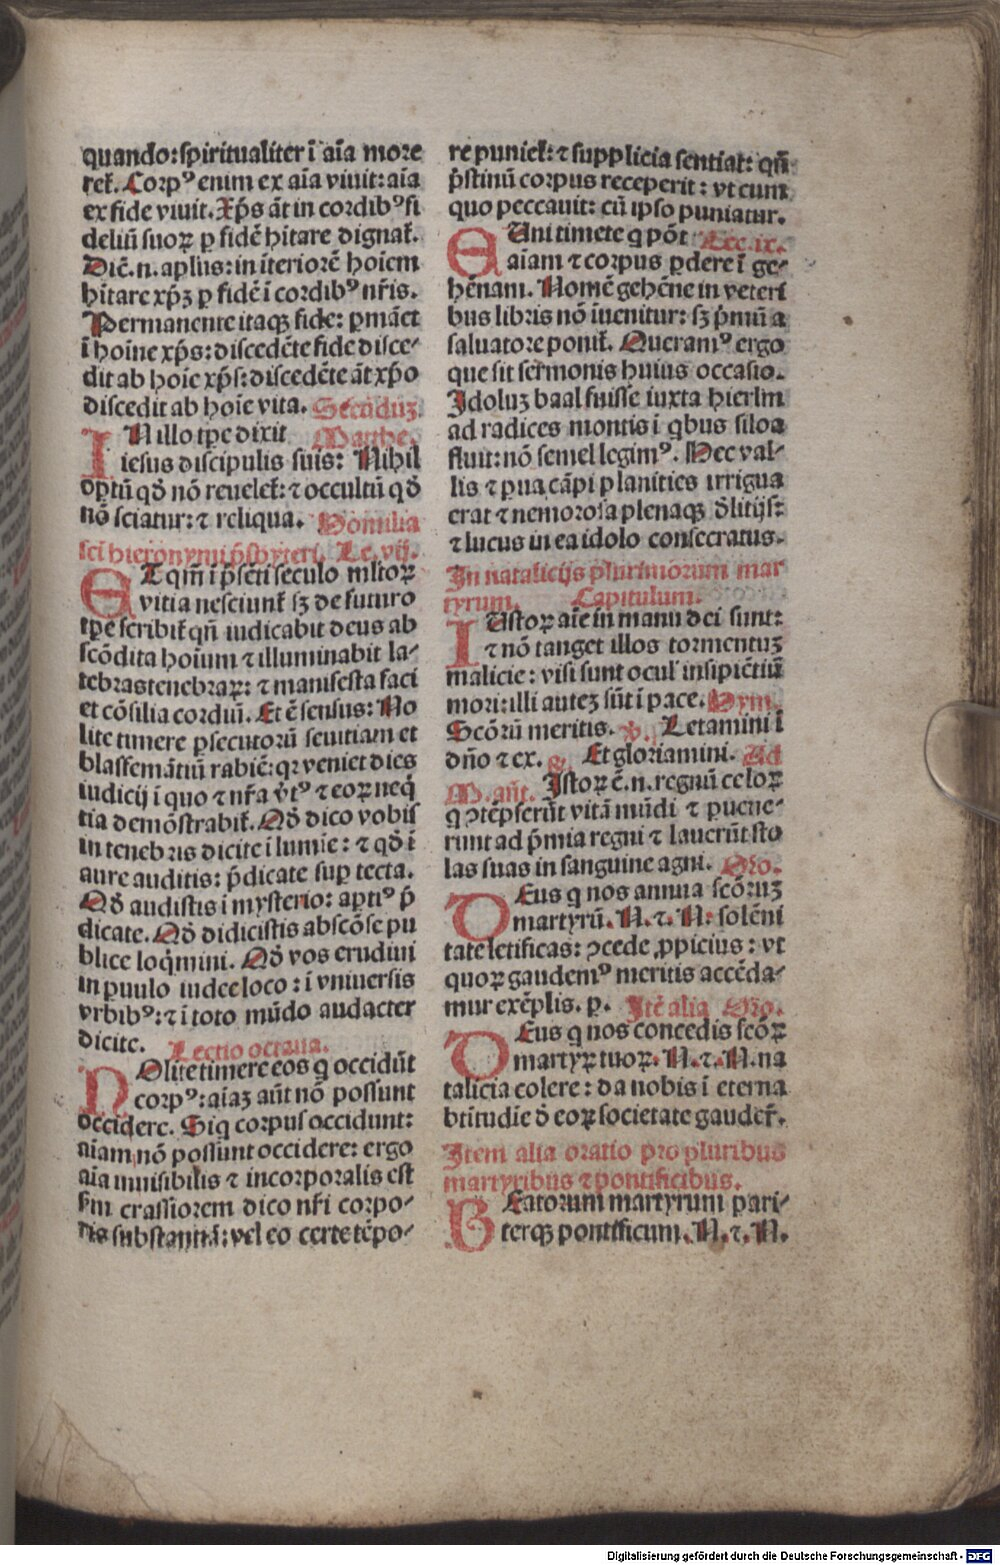 quando: spiritualiter ī aīa more
ret̄. Corpꝰ enim ex aīa viuit: aīa
ex fide viuit. Xp̄s āt in cordibꝰ fi
deliū suoꝝ ꝑ fidē hītare dignat̄.
Dic̄.n. apl̄us: in īteriorē hoīem
hītare xp̄ꝫ ꝑ fidē ī cordibꝰ nr̄is.
Permanente itaqꝫ fide: ꝑmāet
ī hoīne xp̄s: discedēte fide disce⸗
dit ab hoīe xp̄s: discedēte āt xp̄o
discedit ab hoīe vita. Secūduꝫ.
IN illo tp̄e dixit Matthe.
iesus discipulis suis: Nihil
oꝑtū qđ nō reuelet̄: ⁊ occultū qđ
nō sciatur: ⁊ reliqua. Homilia
sc̄i hieronymi p̄sbyteri. Le. vij.
ET qm̄ ī p̄sēti seculo ml̄toꝝ
vitia nesciunt̄ sꝫ de futuro
tp̄e scribit̄ qn̄ iudicabit deus ab
scōdita hoīum ⁊ illuminabit la⸗
tebras tenebraꝝ: ⁊ manifesta faci
et cōsilia cordiū. Et ē sensus: No
lite timere ꝑsecutorū seuitiam et
blasfemātiū rabiē: qꝛ veniet dies
iudicij ī quo ⁊ nr̄a v̓tꝰ ⁊ eoꝝ neq̇
tia demōstrabit̄. Qđ dico vobis
in tenebris dicite ī lumīe: ⁊ qđ ī
aure auditis: p̄dicate suꝑ tecta.
Qđ audistis ī mysterio: aptiꝰ p̄
dicate. Qđ didicistis abscōse pu
blice loq̇mini. Qđ vos erudiui
in ꝑuulo iudee loco: ī vniuersis
vrbibꝰ: ⁊ ī toto mūdo audacter
dicite. Lectio octaua.
NOlite timere eos q̇ occidūt
corpꝰ: aīaꝫ aūt nō possunt
occidere. Si q̇ corpus occidunt:
aīam nō possunt occidere: ergo
aīa inuisibilis ⁊ incorporalis est
fm̄ crassiorem dico nr̄i corpo⸗
ris substantiā: vel eo certe tēpo⸗
re puniet̄: ⁊ supplicia sentiat: qn̄
p̄stinū corpus receperit: vt cum
quo peccauit: cū ipso puniatur.
EUm timete q̇ pōt Lec. ix.
aīam ⁊ corpus ꝑdere ī ge⸗
hēnam. Nomē gehēne in veteri
bus libris nō īuenitur: sꝫ p̄mū a
saluatore ponit̄. Queramꝰ ergo
que sit sermonis huius occasio.
Idoluꝫ baal fuisse iuxta hierlm̄
ad radices montis ī q̇bus siloa
fluit: nō semel legimꝰ. Hec val⸗
lis ⁊ ꝑua cāpi planities irrigua
erat ⁊ nemorosa plenaqꝫ đlitijs:
⁊ lucus in ea idolo consecratus.
In natalicijs plurimorum mar
tyrum. Capitulum.
IUstoꝝ aīe in manu dei sunt:
⁊ nō tanget illos tormentuꝫ
malicie: visi sunt ocul̓ insipiētiū
mori: illi auteꝫ sūt ī pace. Hym.
Scōrū meritis. v̓. Letamini ī
dn̄o ⁊ ex. R̓. Et gloriamini. Ad
M. an̄t. Istoꝝ ē.n. regnū celoꝝ
q̇ ꝯtēpserūt vitā mūdi ⁊ ꝑuene⸗
runt ad p̄mia regni ⁊ lauerūt sto
las suas in sanguine agni. Oro.
DEus q̇ nos annua scōruꝫ
martyrū. N. ⁊. N: solēni
tate letificas: ꝯcede ꝓpicius: vt
quoꝝ gaudemꝰ meritis accēda⸗
mur exēplis. ꝑ. Itē alia Oro.
DEus q̇ nos concedis scōꝝ
martyꝝ tuoꝝ. N. ⁊. N. na
talicia colere: da nobis ī eterna
btītudīe đ eoꝝ societate gauder̄.
Item alia oratio pro pluribus
martyribus ⁊ pontificibus.
BEatorum martyrum pari⸗
terqꝫ pontificum. N. ⁊. N.
Digitalisierung gefördert durch die Deutsche Forschungsgemeinschaft - DFG